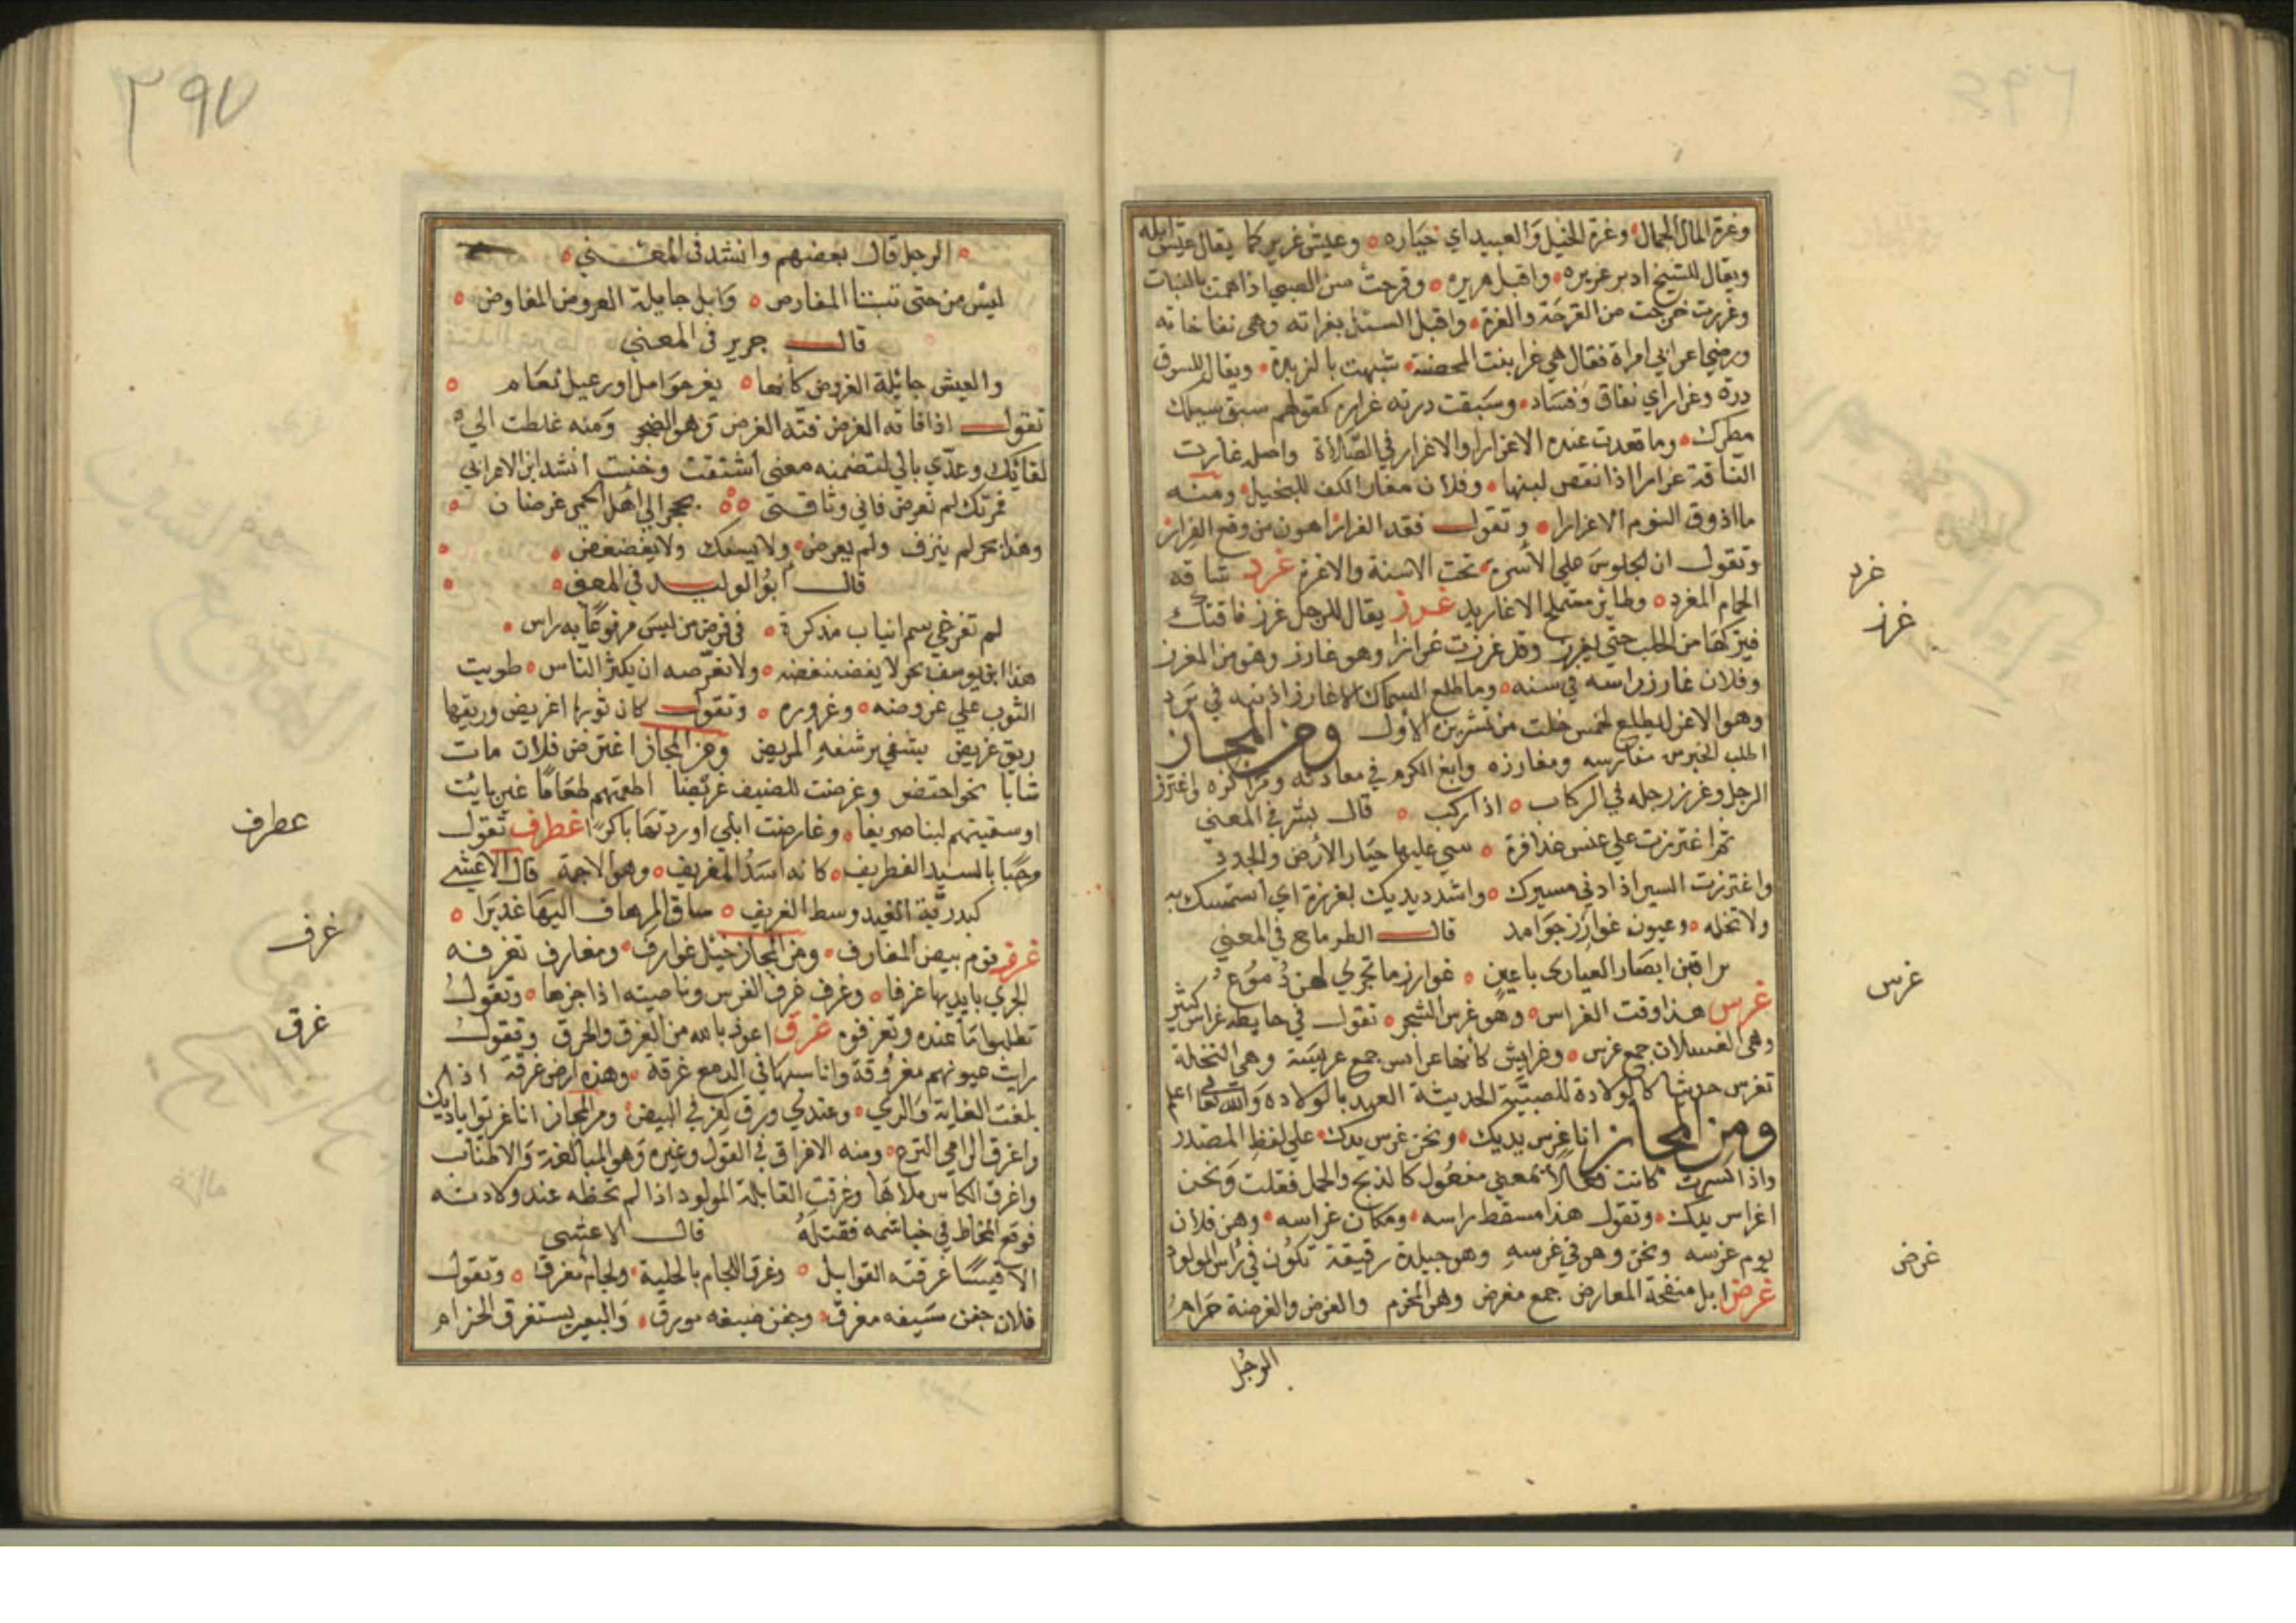 وغرة المال الجمال وغرة الخيل والعبيد اي خياره وعيش غرير كما يقال عيش ابله
ويقال للشيخ ادبر غريره واقبل هريره وقرحت سن الصبي اذا همت بالنبات
وغررت خرجت من القرحة والغرة واقبل السيل بغراته وهي نفاخاته
ورضي اعرابي امراة فقال هي غرا بنت المحضة شبهت بالزبدة ويقال للسوق
درة وغرار اي نفاق وفساد وسبقت درته غراره كقولهم سبق سيلك
مطرك وما قعدت عنده الا غرارا والاغرار في الصلاة واصله غارت
الناقة غرارا اذا نقص لبنها وفلان مغار الكف للبخيل ومنه
ما اذوق النوم الا غرارا وتقول فقد الغرار اهون من وقع الغرار
وتقول ان الجلوس على الأسرة تحت الاسنة والاغرة غرد شاقه
الحمام المغرد وطاير مستملح الاغاريد غرز يقال للرجل غرز ناقتك
فيتركها من الحلب حتى يغرز وقد غرزت غرازا وهو غارز وهو من الغرز
وفلان غارز راسه في سنه وما طلع السماك الا غارز اذنبه في برد
وهو الاعزل يطلع لخمس خلت من تشرين الاول ومن المجاز
اطلب الخير من مغارسه ومغارزه وابغ الكرم في معادنه ومراكزه واغترز
الرجل وغرز رجله في الركاب اذا ركب قال بشر في المعني
ثم اغترزت على عنس عذافرة سي عليها خيار الأرض والجدد
واغترزت السير اذا دني مسيرك واشدد يديك بغرزة اي استمسك به
ولا تخله وعيون غوارز جوامد قال الطرماح في المعني
يراقبن ابصار الغيارى باعين غوارز ما تجري لهن دموع
غرس هذا وقت الغراس وهو غرس الشجر تقول في حايطه غراس كثير
وهي الفسلان جمع غرس وغرايس كأنها عرايس جمع غريسة وهي النخلة
تغرس حديثا كالولادة للصبية الحديثة العهد بالولادة والله تعالى اعلم
ومن المجاز انا غرس يديك ونحن غرس يدك على لفظ المصدر
واذا كسرت كانت فعالا بمعنى مفعول كالذبح والحمل فقلت ونحن
اغراس يدك وتقول هذا مسقط راسه ومكان غراسه وهن فلان
يوم غرسه ونحن وهو في غرسه وهو جبلدة رقيقة تكون في رأس المولود
غرض ابل منفحة المعارض جمع مغرض وهو المحزم والغرض والغرضة حزام
الرجل
غرد
غرز
غرس
غرض
٣٩٧
الرجل قال بعضهم وانشد في المعني
ليس من حتى تبتنا المغارض وابل جايلة الغروض المغاوض
قال جرير في المعني
والعيش جائلة الغروض كأنها بقر حوامل او رعيل نعام
تقول اذا فاته الغرض فته الغرض وهو الضجر ومنه غلطت الى
لقائك وعدي بالي لتضمنه معنى اشتقت وخنيت انشد ابن الاعرابي
فمن تك لم تغرض فاني وناقتي بحجر الى اهل الحمى غرضان
وهذا بحر لم ينزف ولم يغرض ولا ينكش ولا يغضغض
قال أبو الوليد في المعنى
هذا ابن يوسف بحر لا يغضغضه ولا تغرضه ان يكثر الناس طويت
الثوب على غروضه وغروره وتقول كان ثغرها اغريض وريقها
ريق غريض يشفي برشفه المريض ومن المجاز اغترض فلان مات
شابا نحو احتضر وغرضت للضيف غريضا اطعمتهم طعاما غير بائت
او سقيتهم لبنا صريفا وغارضت ابلي اوردتها باكرا غطرف تقول
مرحبا بالسيد الغطريف كانه اسد الغريف وهو الاجمة قال الاعشى
كبردية الغيل وسط الغريف ساق الرصاف اليها غديرا
غرف قوم بيض المغارف ومن المجاز خيل غوارف ومغارف تغرف
الجري بايديها غرفا وغرف غرف الفرس وناصيته اذا جزها وتقول
تطلبوا ما عنده وتعرفوه غرق اعوذ بالله من الغرق والحرق وتقول
رايت عيونهم مغروقة واناسيها في الدمع غرقة وهذه ارض غرقة اذا
بلغت الغاية والري وعندي ورق كغرقي البيض ومن المجاز انا غريق اياديك
واغرق الرامي النزع ومنه الاغراق في القول وغيره وهو المبالغة والاطناب
واغرق الكاس ملاها وغرقت القابلة المولود اذا لم تحطه عند ولادته
فوقع المخاط في خياشيمه فقتله قال الاعشى
الا قيسا غرقته القوابل وغرق اللجام بالحلية ولجام مغرق وتقول
فلان جفن سيفه مغرق وجفن ضيفه مورق والبعير يستغرق الحزام
عطرف
غرف
غرق